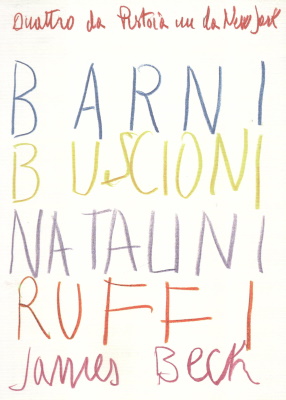 Quattro da Pistoia un da New Jork
BARNI
BUSCIONI
NATALINI
RUFFI
James Beck